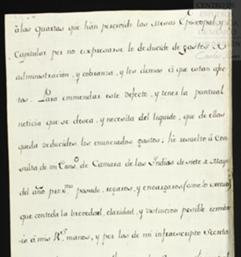 à las Quartas que hàn percevido las Mesas Episcopal, y
Capitular por no expresarse lo deducido de gastos de
administracion, y cobranza, y los demas à que estan afec
tos. Para enmendar este defecto, y tener la puntual
noticia que se desea, y necesita del liquido, que de ellas
queda deducidos los enunciados gastos; hè resuelto à Con
sulta de mi Cons.º de Camara de las Indias de siete de Mayo
del año pro.mo pasado, rogaros, y encargaros (como lo executo)
que con toda la brevedad, claridad, y distincion posible remi
tais à mis R.s manos, y por las de mi infraescripto Secreta